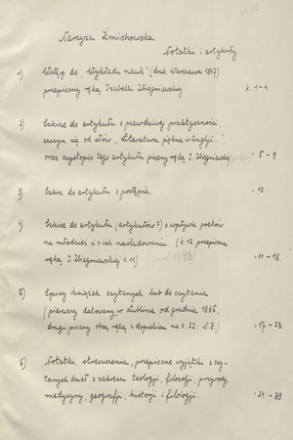 Narcyza Żmichowska.
Notatki i artykuły.
1) Wstęp do „Wykładu nauk" (druk. Warszawa 1847)
przepisany ręką Izabelli Zbiegniewskiej k. 1-4.
2) Szkice do artykułu o prawdziwej praktyczności
zaczyn. się od słów „Literatura piękna w Anglji..."
oraz czystopis tego artykułu pisany ręką I. Zbiegniewskiej " 5-9.
3) Szkic do artykułu o postępie. " 10.
4) Szkice do artykułu (artykułów?) o wpływie poetów
na młodzież i o ich naśladowaniu. (k. 12 przepisana
ręką I. Zbiegniewskiej k. 11) " 11-16.
5) Spisy książek czytanych lub do czytania
(pierwszy datowany w Lublinie od grudnia 1866,
drugi pisany obcą ręką z dopiskiem na k. 22. N.Ż.) " 17-23.
6) Notatki, streszczenia, przepisane wyjątki z czy-
tanych dzieł z zakresu teologji, filozofji, przyrody,
medycyny, geografji, historji i filologji. " 24-89.